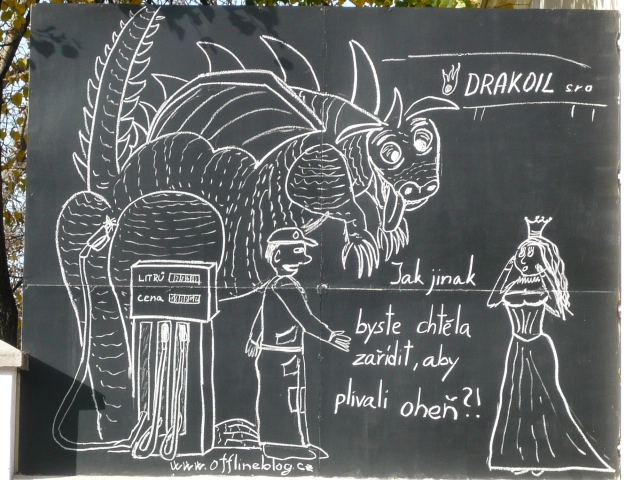 DRAKOIL sro
LITRŮ
cena
Jak jinak
byste chtěla
zařídit, aby
plivali oheň?!
www.offlineblog.cz